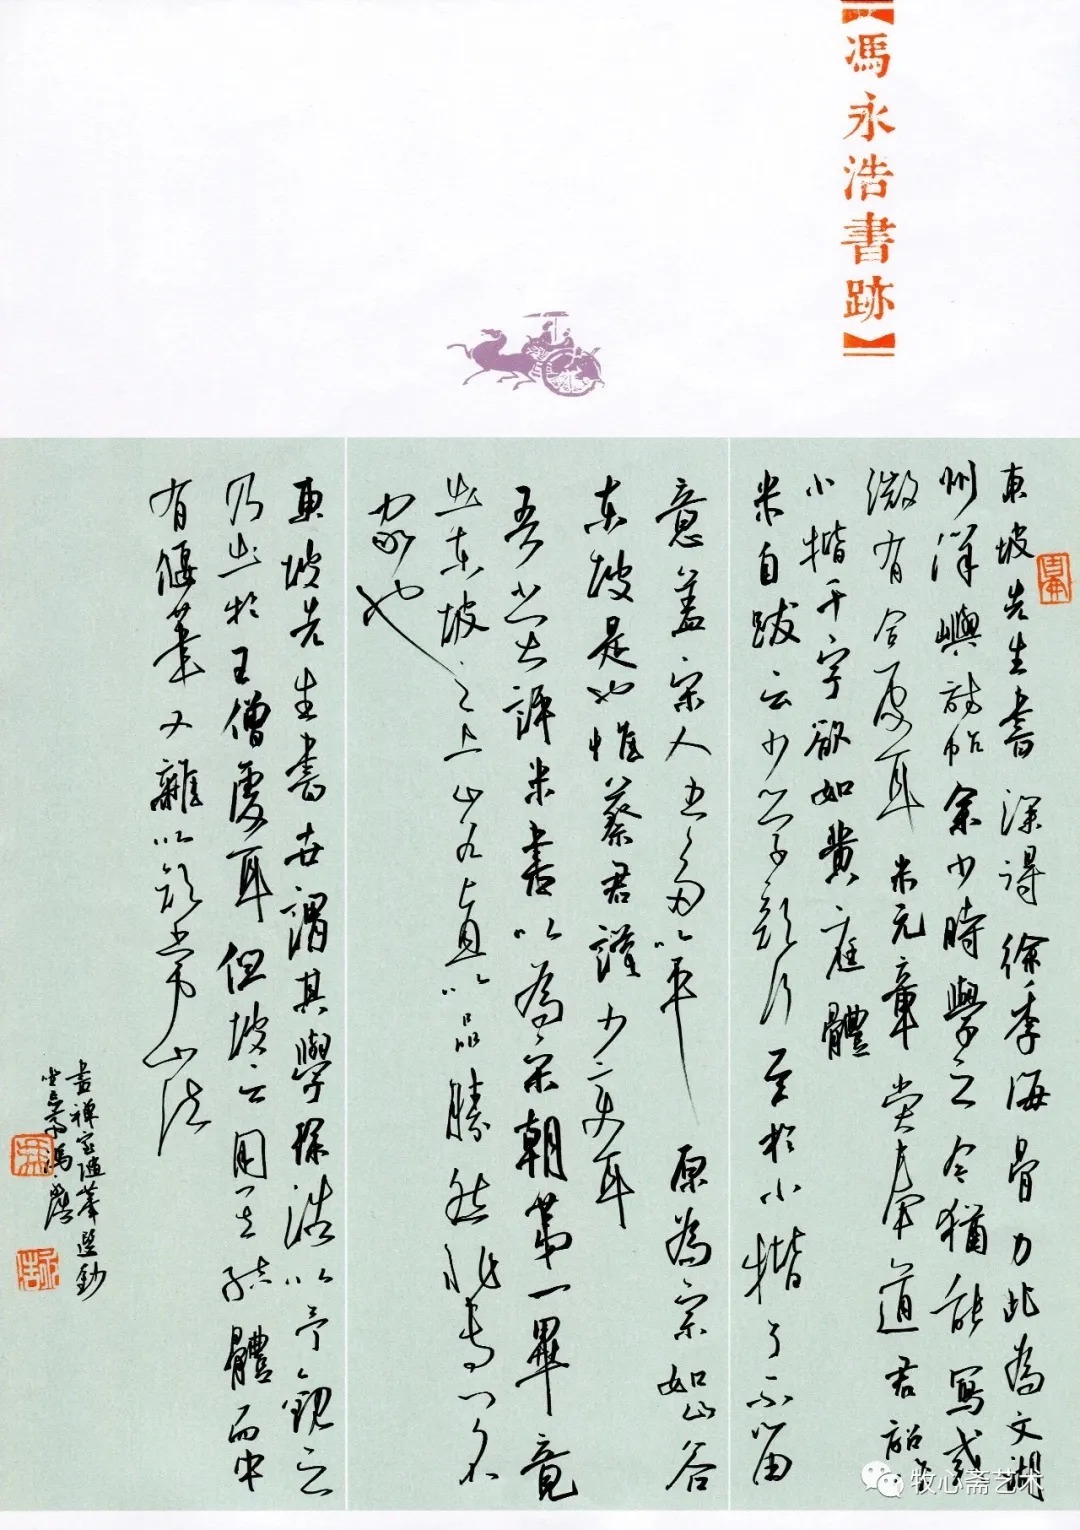 【馮永浩書跡】
東坡先生書深得徐季海骨力此為文湖
州洋嶼詩帖余少時學之今猶能寫或
微有合處耳米元章嘗奉道君詔作
小楷千字欲如黃庭體
米自跋云少學顏行至於小楷了不留
意蓋宋人書多以平原為宗如山谷
東坡是也惟蔡君謨少變耳
吾嘗評米書以為宋朝第一畢竟
出東坡之上山谷直以品勝然非專門名
家也
東坡先生書世謂其學徐浩以予觀之
乃出於王僧虔耳但坡公用其結體而中
有偃筆又雜以顏常山法
畫禪室隨筆選鈔
牧心斋艺术